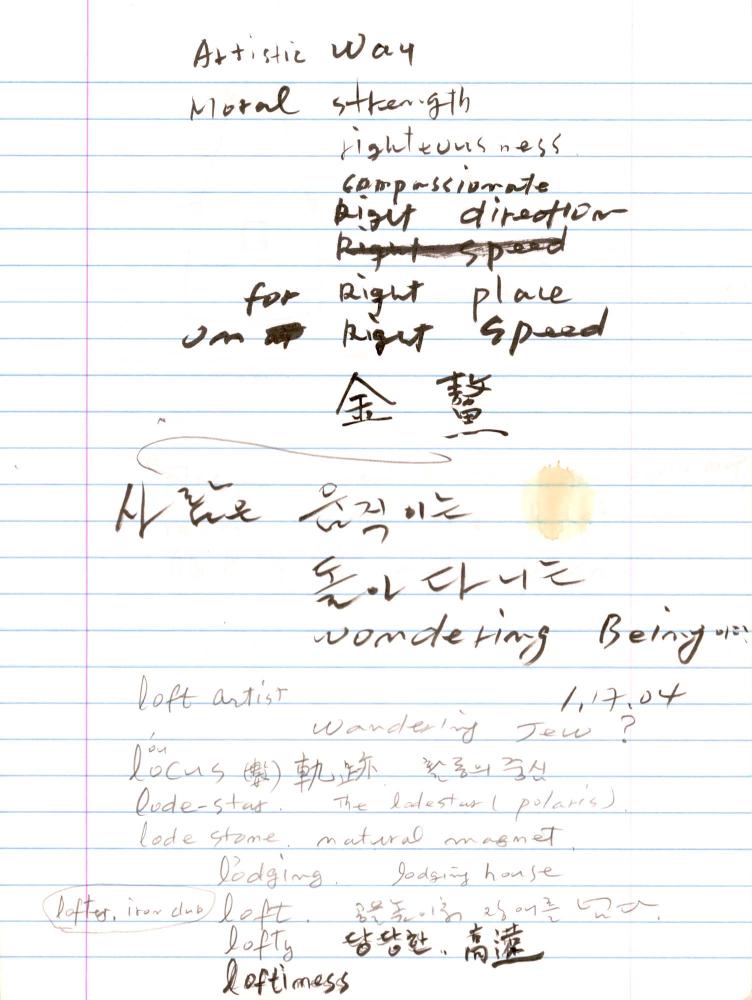 Artistic Way
Moral strength
righteousness
compassionate
Right direction
Right speed
for Right place
on Right Speed
金 鰲
사람은 움직이는
돌아 다니는
wondering Being 이다
loft artist 1.17.04
wandering Jew ?
locus (數) 軌跡 활동의 중심
lode-star. The lodestar (polaris).
lode stone. natural magnet.
lodging. lodging house
lofter. iron club loft. 공을 높이 장애를 넘다.
lofty 당당한. 高遠
loftiness